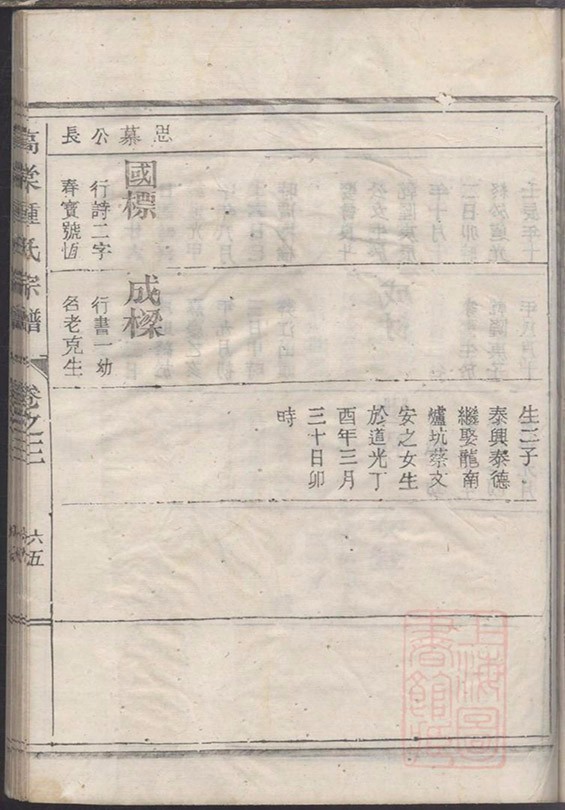 生三子
泰興泰德
繼娶龍南
爐坑蔡文
安之女生
於道光丁
酉年三月
三十日卯
時
思慕公長
國標
行詩二字
春寶號恆
成樑
行書一幼
名老克生
鍾氏宗譜
卷之三
六五
上海圖書館藏